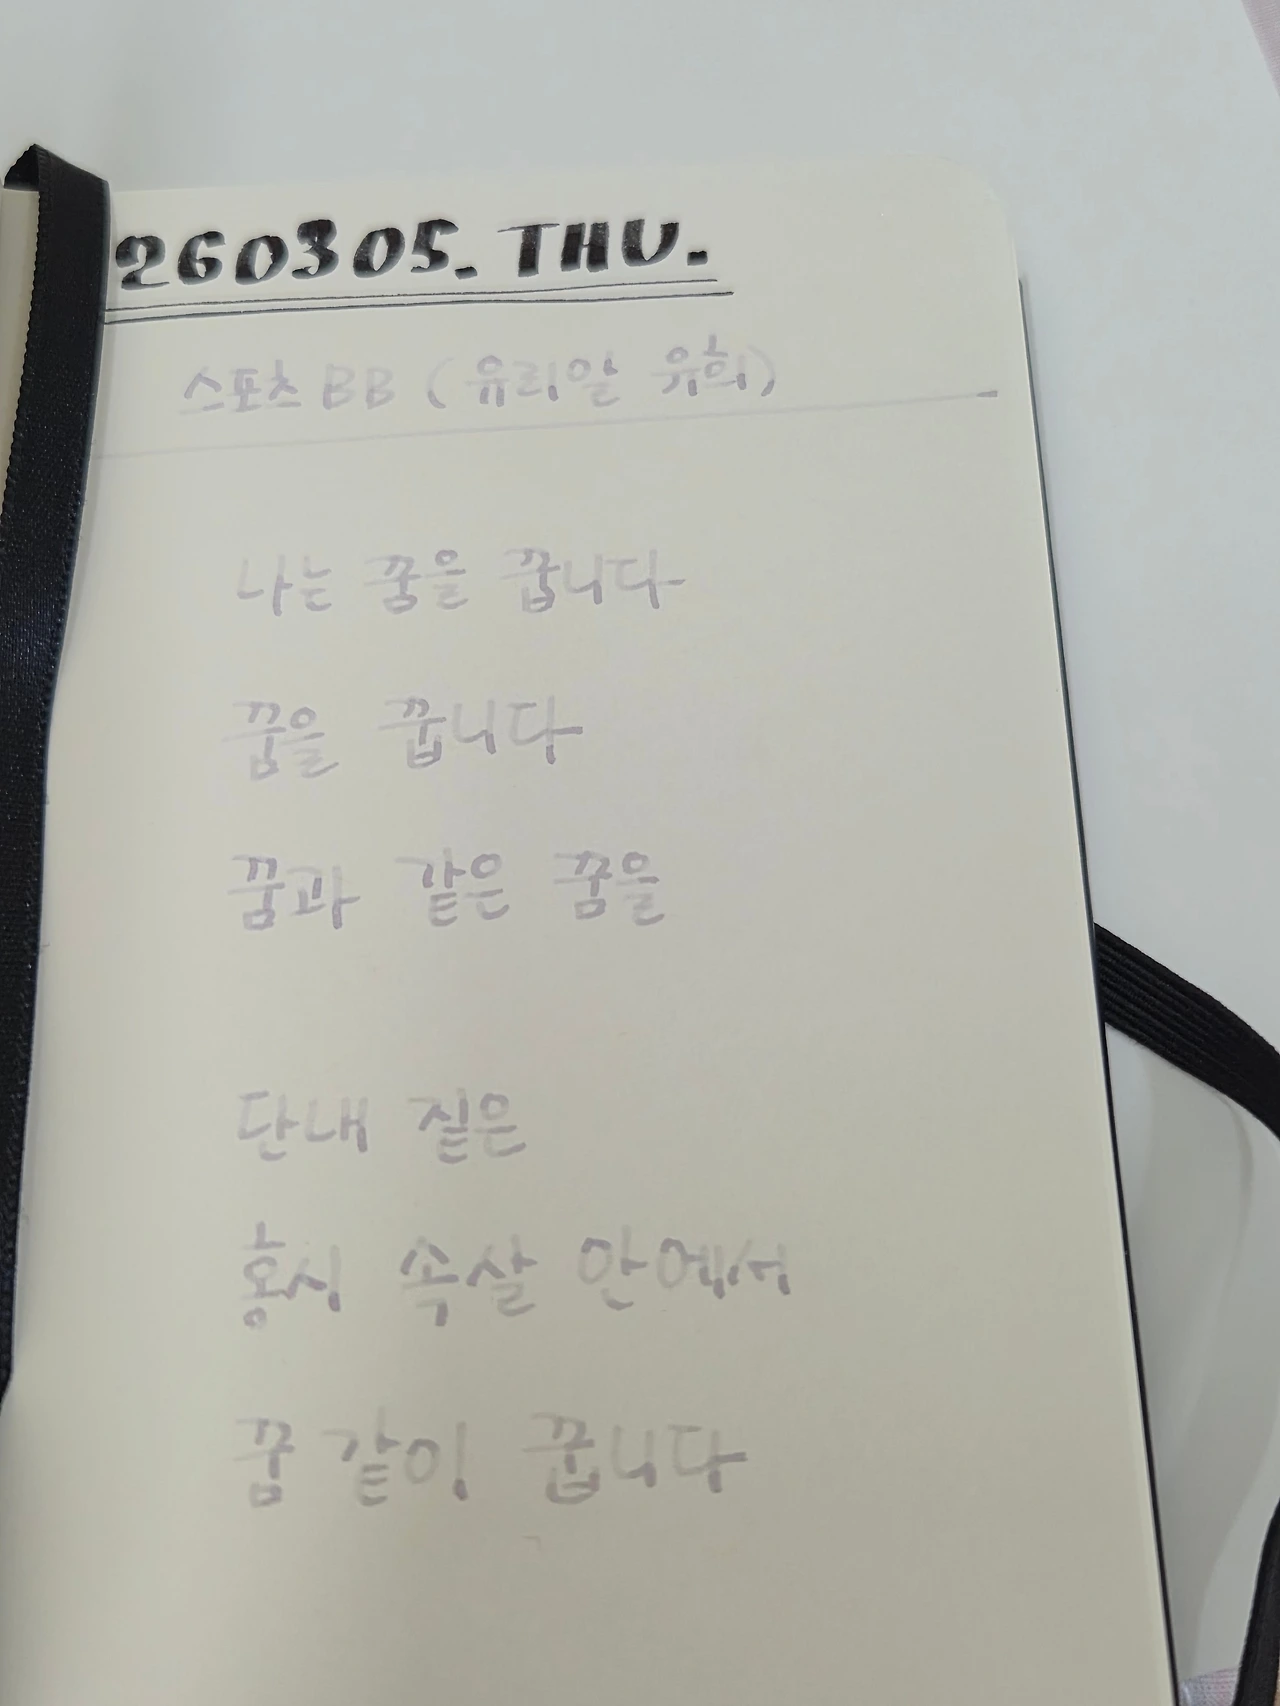 260305. THU.
스포츠 BB (유리알 유희)
나는 꿈을 꿉니다
꿈을 꿉니다
꿈과 같은 꿈을
단내 짙은
홍시 속살 안에서
꿈 같이 꿉니다